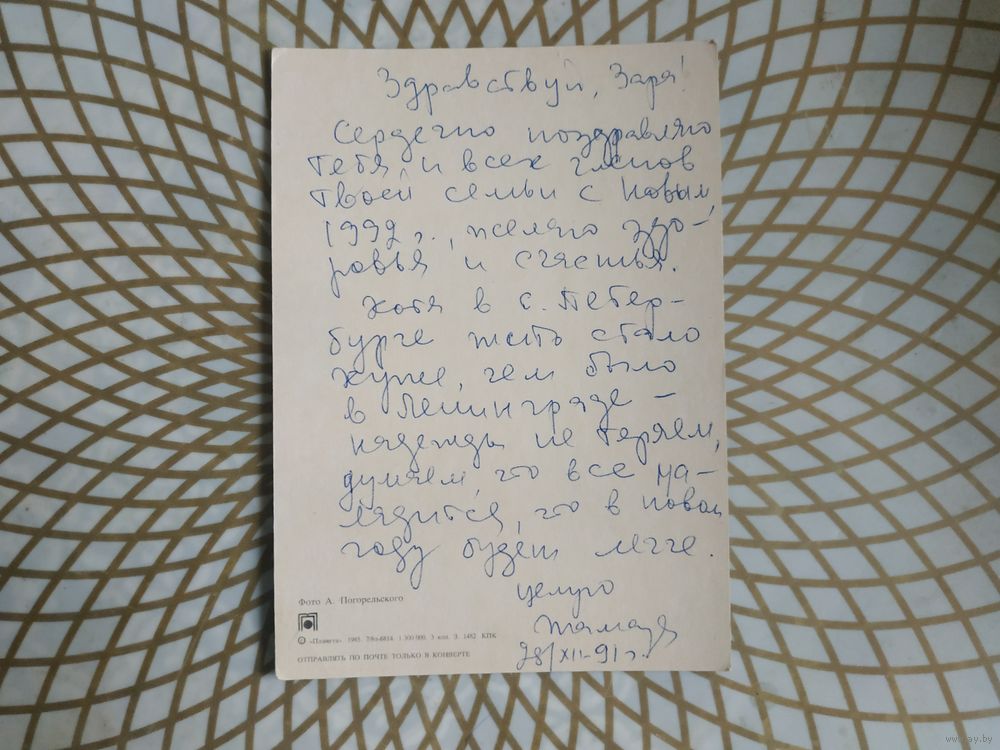 Здравствуй, Заря!
Сердечно поздравляю
тебя и всех членов
твоей семьи с Новым
1992 г., желаю здо-
ровья и счастья.
Хотя в С. Петер-
бурге жить стало
хуже, чем было
в Ленинграде –
надежды не теряем,
думаем, что все на-
ладится, что в новом
году будет легче.
Целую
28/XII-91 г.
Фото А. Погорельского
© «Планета» 1985. 1 300 000. 3 коп. З. 1482 КПК
ОТПРАВЛЯТЬ ПО ПОЧТЕ ТОЛЬКО В КОНВЕРТЕ